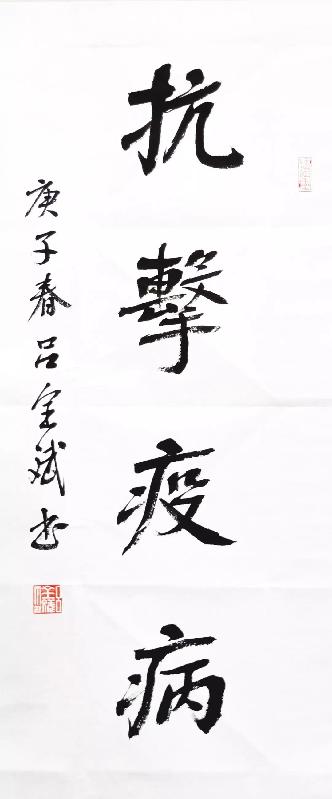 抗擊疫病
庚子春吕金斌书